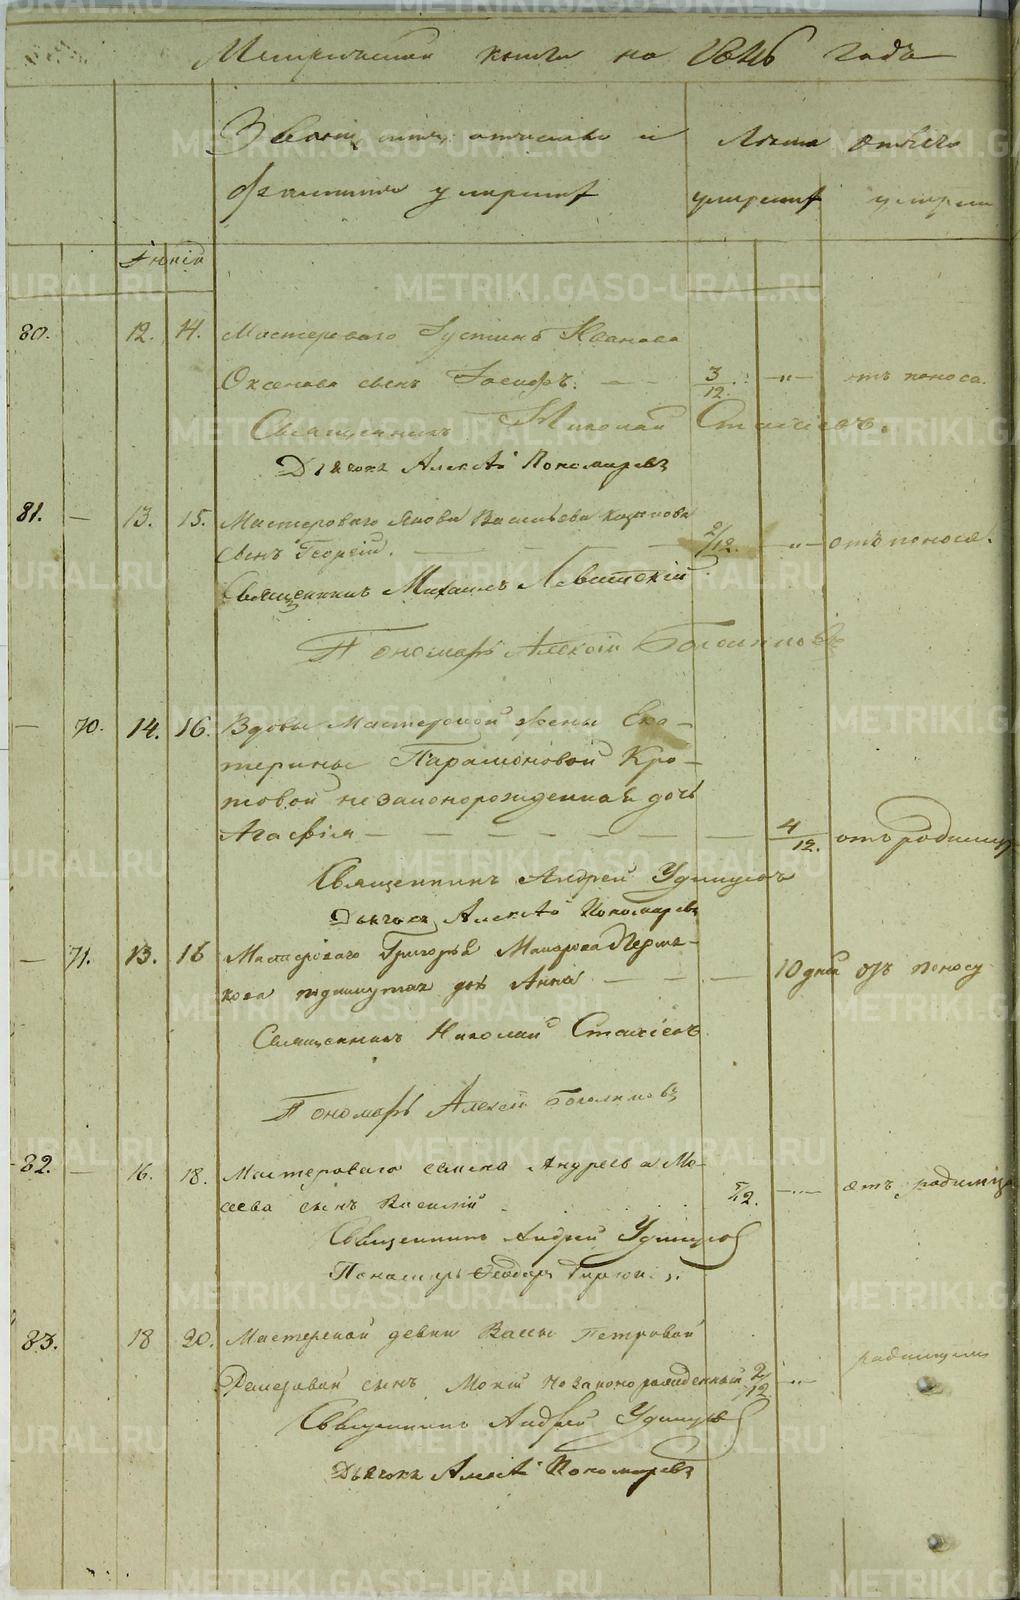 Метрической книги на год
Званіе, имя, отчество и
фамилія умершихъ
Лѣта
умершихъ
Отъ чего
умерли
Іюнія
80. 12. 14. Мастероваго Іустина Иванова
Оксенова сынъ Іосифъ. 3/12. „ отъ поноса.
Священникъ Николай Стахіевъ.
Дьячокъ Алексѣй Пономаревъ
81. — 13. 15. Мастероваго Якова Васильева Казанова
сынъ Георгій. 2/12. — „ — отъ поноса.
Священникъ Михаилъ Левитскій
Пономарь Алексій Боголиповъ
— 70. 14. 16. Вдовы Мастерской жены Ека-
терины Парамоновой Кро-
товой незаконорожденная дочь
Агафія — 4/12. отъ родимца
Священникъ Андрей Удинцовъ
Дьячокъ Алексѣй Пономаревъ
— 71. 13. 16 Мастероваго Григорья Макарова
дочь Анна — 10 дней отъ поносу
Священникъ Николай Стахіевъ.
Пономарь Алексѣй Боголиповъ
82. — 16. 18. Мастероваго Семена Андреева Мо-
сеева сынъ Василій 5/12. — „ — отъ родимца
Священникъ Андрей Удинцовъ
Пономарь Ѳеодоръ
83. 18 20. Мастерской девки Вассы Петровой
Ремезовой сынъ Мокій незаконорожденный 2/12 — „ — родимцемъ
Священникъ Андрей Удинцовъ
Дьячокъ Алексѣй Пономаревъ
METRIKI.GASO-URAL.RU